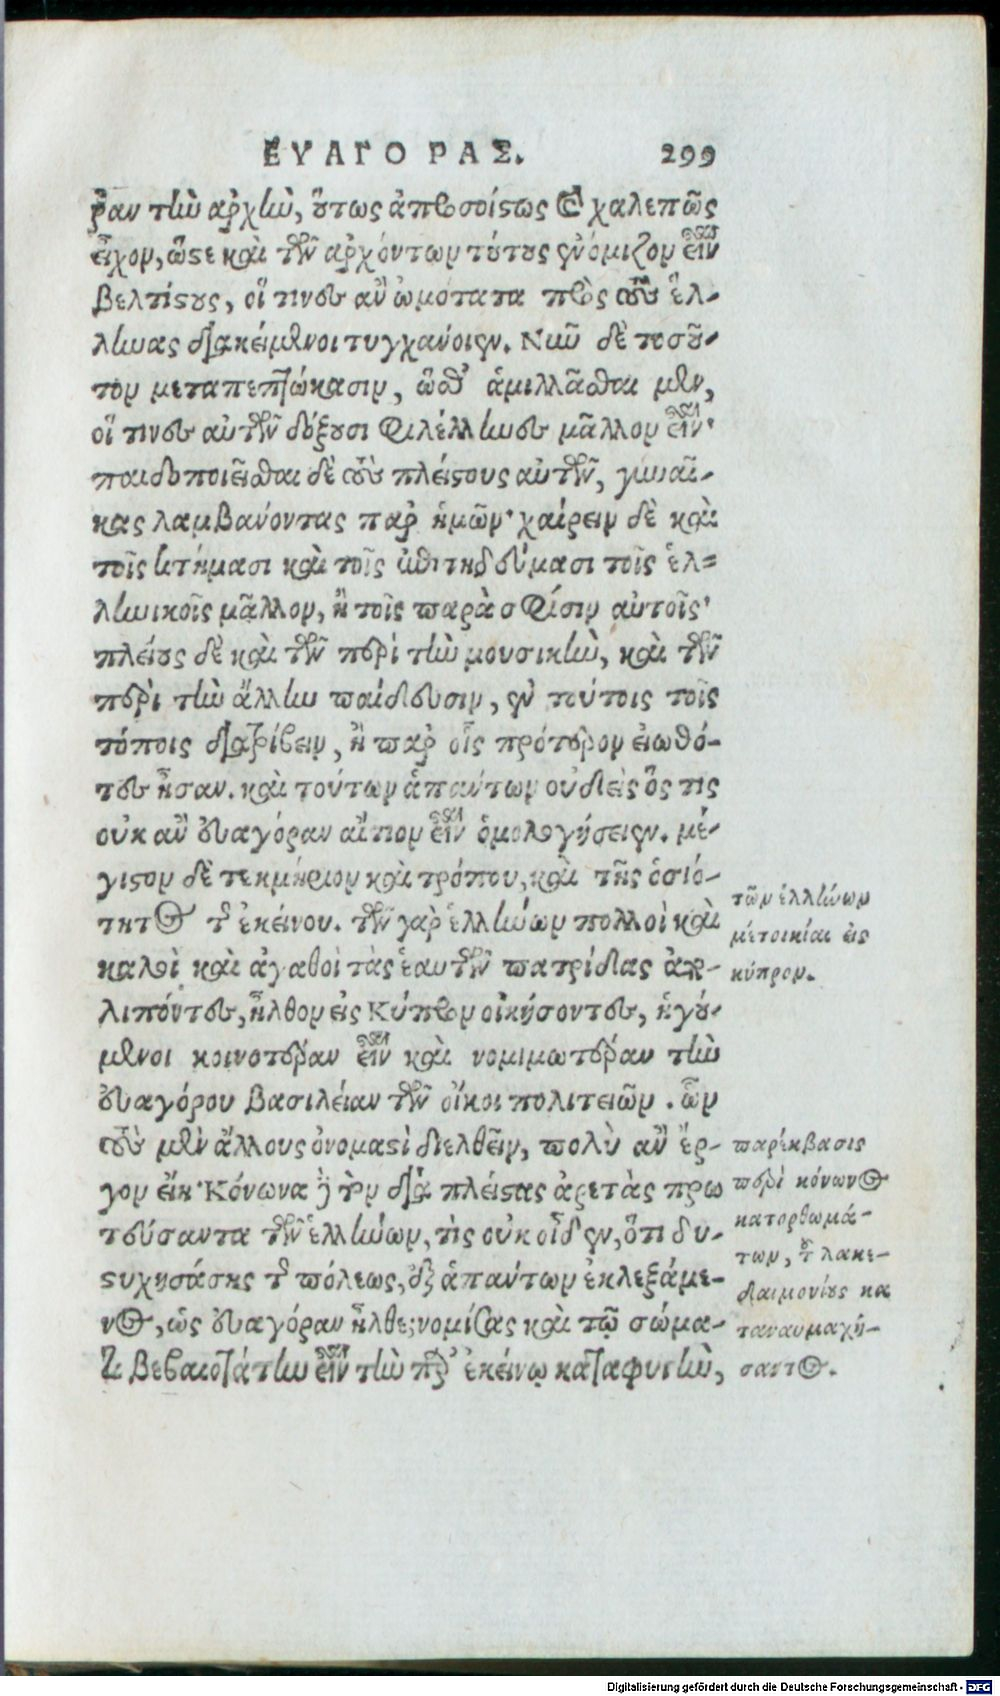 ΕΥΑΓΟΡΑΣ. 299
ραν τὴν ἀρχὴν, οὕτως ἀπροσοίστως καὶ χαλεπῶς
εἶχον, ὥστε καὶ τῶν ἀρχόντων τούτους ἐνόμιζον εἶναι
βελτίστους, οἵ τινες ἂν ὠμότατα πρὸς τοὺς ἑλ-
ληνας διακείμενοι τυγχάνοιεν. Νῦν δὲ τοσοῦ-
τον μεταπεπτώκασιν, ὥσθ' ἁμιλλᾶσθαι μὲν,
οἵ τινες αὐτῶν δόξουσι φιλέλληνες μᾶλλον εἶναι·
παιδοποιεῖσθαι δὲ τοὺς πλείστους αὐτῶν, γυναῖ-
κας λαμβάνοντας παρ' ἡμῶν· χαίρειν δὲ καὶ
τοῖς κτήμασι καὶ τοῖς ἐπιτηδεύμασι τοῖς ἑλ-
ληνικοῖς μᾶλλον, ἢ τοῖς παρὰ σφίσιν αὐτοῖς·
πλείους δὲ καὶ τῶν περὶ τὴν μουσικὴν, καὶ τῶν
περὶ τὴν ἄλλην παίδευσιν, ἐν τούτοις τοῖς
τόποις διατρίβειν, ἢ παρ' οἷς πρότερον εἰωθό-
τες ἦσαν. καὶ τούτων ἁπάντων οὐδεὶς ὅς τις
οὐκ ἂν εὐαγόραν αἴτιον εἶναι ὁμολογήσειεν. μέ-
γιστον δὲ τεκμήριον καὶ τρόπου, καὶ τῆς ὁσιό-
τητος τοῦ ἐκείνου. τῶν γὰρ ἑλλήνων πολλοὶ καὶ
καλοὶ καὶ ἀγαθοὶ τὰς ἑαυτῶν πατρίδας ἀπο-
λιπόντες, ἦλθον εἰς Κύπρον οἰκήσοντες, ἡγού-
μενοι κοινοτέραν εἶναι καὶ νομιμωτέραν τὴν
εὐαγόρου βασιλείαν τῶν οἴκοι πολιτειῶν. ὧν
τοὺς μὲν ἄλλους ὀνομαστὶ διελθεῖν, πολὺ ἂν ἔρ-
γον εἴη· Κόνωνα δὲ τὸν διὰ πλείστας ἀρετὰς πρω
τεύσαντα τῶν ἑλλήνων, τὶς οὐκ οἶδεν, ὅτι δυ-
στυχησάσης τῆς πόλεως, ἐξ ἁπάντων ἐκλεξάμε-
νος, ὡς εὐαγόραν ἦλθε; νομίσας καὶ τῷ σώμα-
τι βεβαιοτάτην εἶναι τὴν παρ' ἐκείνῳ καταφυγὴν,
τῶν ἑλλήνων
μετοικίαι εἰς
κύπρον.
παρέκβασις
περὶ κόνωνος
κατορθωμά-
των, τοῦ λακε-
δαιμονίους κα
ταναυμαχή-
σαντος.
Digitalisierung gefördert durch die Deutsche Forschungsgemeinschaft - DFG